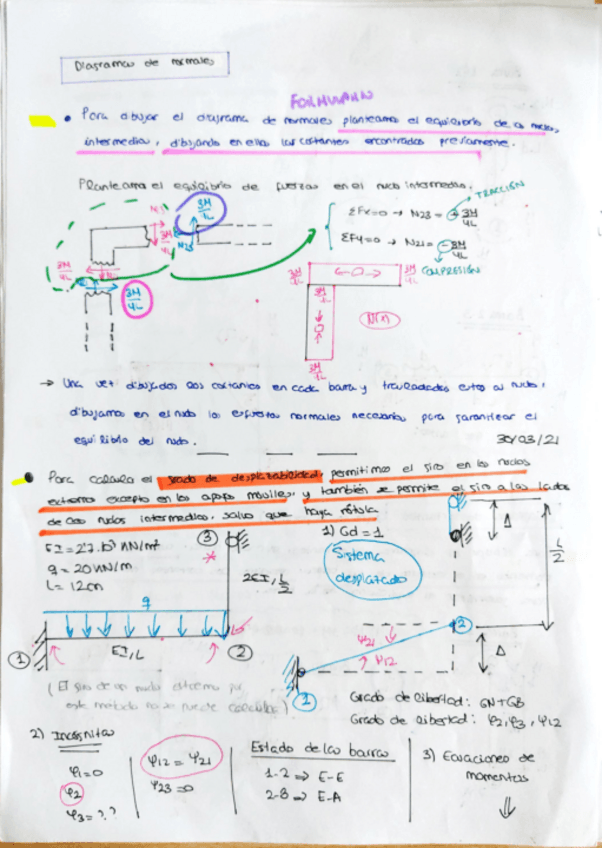 Diagramas de normales
FORMULARIO
• Para dibujar el diagrama de normales planteamos el equilibrio de los nudos
intermedios, dibujando en ellos los cortantes encontrados previamente.
Planteamos el equilibrio de fuerzas en el nudo intermedio.
TRACCIÓN
ΣFx=0 → N23 = + 3M/4L
ΣFy=0 → N21 = - 3M/4L
COMPRESIÓN
N23
3M/4L
3M/4L
N23
3M/4L
3M/4L
3M/4L
3M/4L
3M/4L
3M/4L
N(x)
→ Una vez dibujados los cortantes en cada barra y trasladados estos al nudo,
dibujamos en el nudo los esfuerzos normales necesarios para garantizar el
equilibrio del nudo.
30/03/21
• Para calcular el grado de desplazabilidad, permitimos el giro en los nudos
extremos excepto en los apoyos móviles, y también se permite el giro a los lados
de los nudos intermedios, salvo que haya rótula
EI = 27·10³ kN/m²
q = 20 kN/m
L = 12cm
3
*
2EI, L/2
1) Gd = 1
Sistema
desplazado
Δ
L/2
q
1
EI, L
2
ψ21
ψ12
2
Δ
1
(El giro de un nudo extremo por
este método no se puede calcular)
Grado de libertad: GN+GB
Grado de libertad: φ2, φ3, ψ12
2) Incógnitas
φ1=0
φ2
φ3=??
ψ12 = ψ21
ψ23 = 0
Estado de las barras
1-2 ⇒ E-E
2-3 ⇒ E-A
3) Ecuaciones de
momentos
⇓